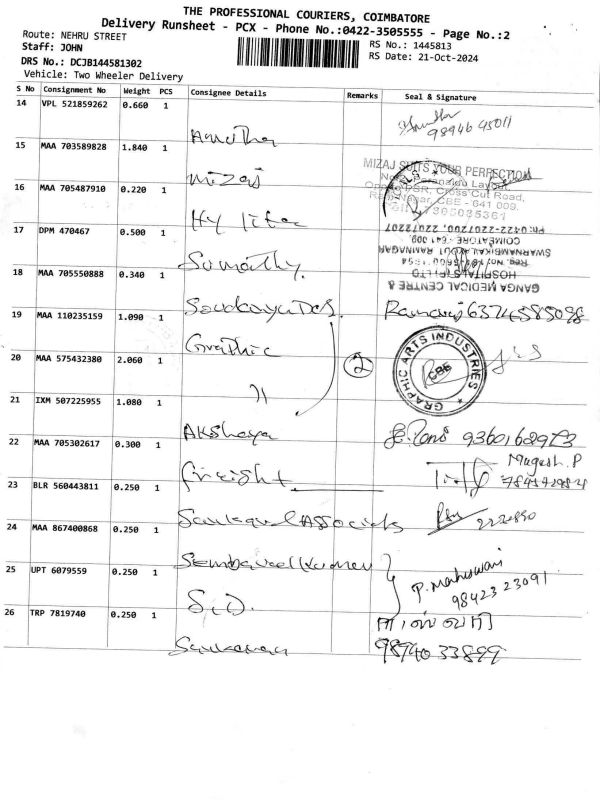 THE PROFESSIONAL COURIERS, COIMBATORE
Delivery Runsheet - PCX - Phone No.:0422-3505555 - Page No.:2
Route: NEHRU STREET
Staff: JOHN
RS No.: 1445813
DRS No.: DCJB144581302
RS Date: 21-Oct-2024
Vehicle: Two Wheeler Delivery
S No Consignment No Weight PCS Consignee Details Remarks Seal & Signature
14 VPL 521859262 0.660 1
Amutha 98946 45011
15 MAA 703589828 1.840 1
Mizaj
MIZAJ SUITS YOUR PERFECTION
Cross Cut Road,
CBE - 641 009.
16 MAA 705487910 0.220 1
17 DPM 470467 0.500 1
Sumathy.
PH: 0422-2207200, 2207207
COIMBATORE - 641 009.
SWARNAMBIKA LAYOUT RAMNAGAR
HOSPITALS (P) LTD
GANGA MEDICAL CENTRE &
18 MAA 705550888 0.340 1
Ramaraj 6374585098
19 MAA 110235159 1.090 1
Graphic
20 MAA 575432380 2.060 1
11
2
GRAPHIC ARTS INDUSTRIES
CBE
21 IXM 507225955 1.080 1
Akshaya 9360168973
22 MAA 705302617 0.300 1
Freight
Mugesh.P
23 BLR 560443811 0.250 1
24 MAA 867400868 0.250 1
25 UPT 6079559 0.250 1
P. Maheswari
98423 23091
S.D.
26 TRP 7819740 0.250 1
98740 33899